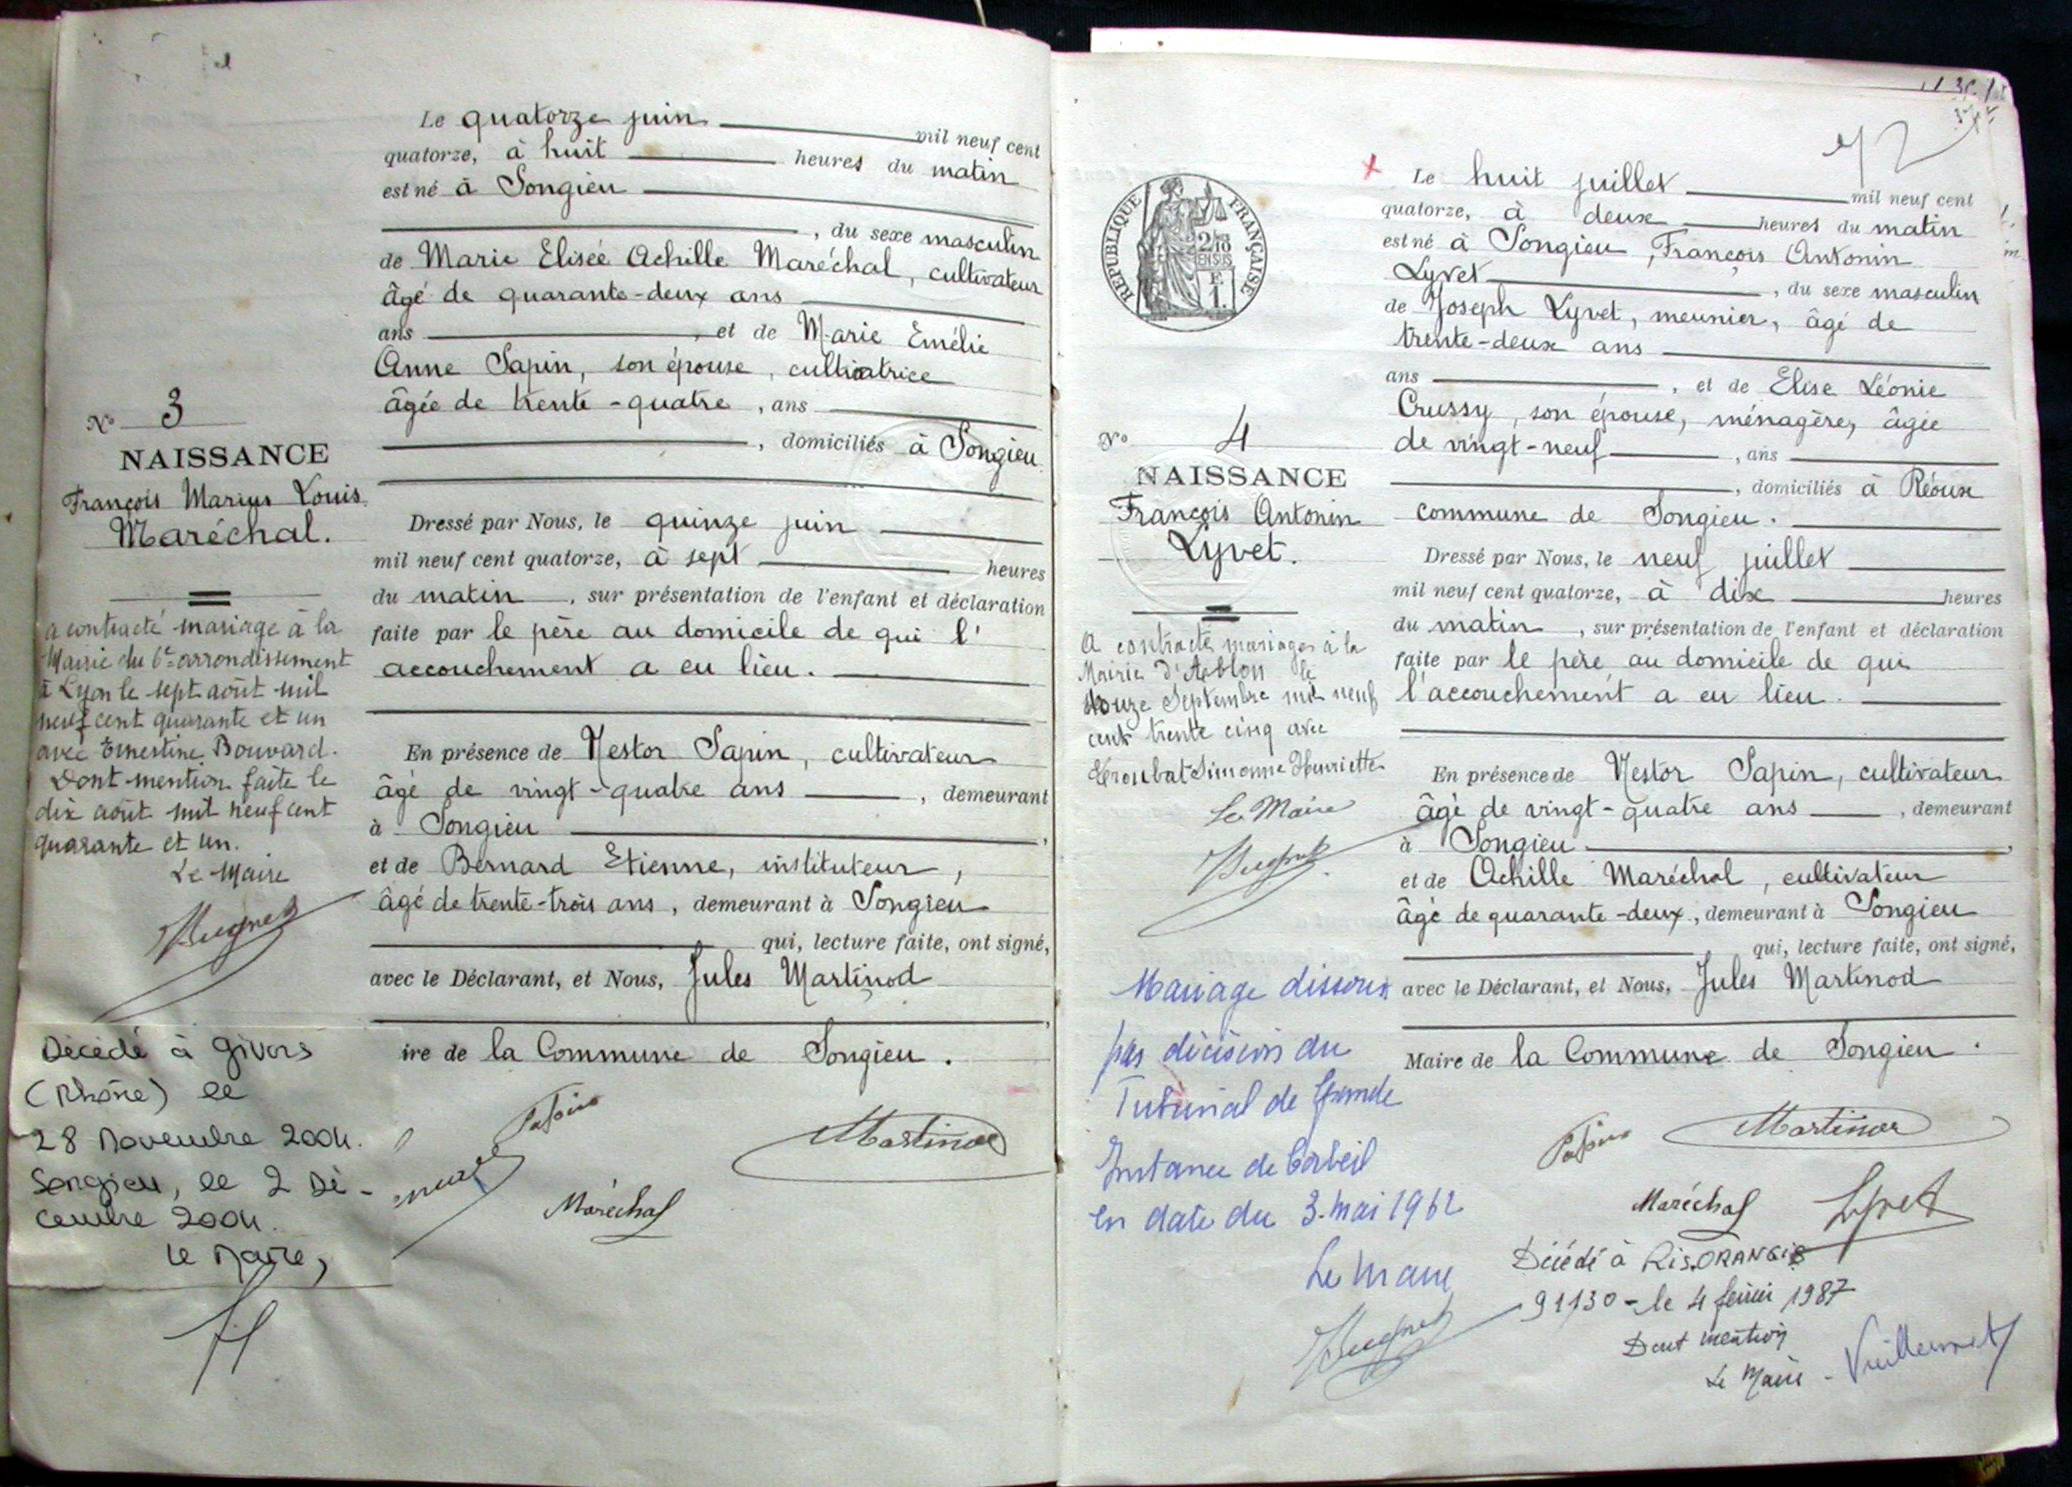 Le quatorze juin mil neuf cent
quatorze, à huit heures du matin
est né à Songieu
, du sexe masculin
de Marie Elisée Achille Maréchal, cultivateur
âgé de quarante-deux ans
ans , et de Marie Emélie
Anne Sapin, son épouse, cultivatrice
âgée de trente-quatre , ans
, domiciliés à Songieu
Dressé par Nous, le quinze juin
mil neuf cent quatorze, à sept heures
du matin , sur présentation de l'enfant et déclaration
faite par le père au domicile de qui l'
accouchement a eu lieu.
En présence de Nestor Sapin, cultivateur
âgé de vingt-quatre ans , demeurant
à Songieu ,
et de Bernard Etienne, instituteur,
âgé de trente-trois ans, demeurant à Songieu
qui, lecture faite, ont signé,
avec le Déclarant, et Nous, Jules Martinod
,
ire de la Commune de Songieu.
Martinod
Maréchal
N° 3
NAISSANCE
François Marius Louis
Maréchal.
a contracté mariage à la
Mairie du 6e arrondissement
à Lyon le sept août mil
neuf cent quarante et un
avec Ernestine Bouvard.
Dont mention faite le
dix août mil neuf cent
quarante et un.
Le Maire
Décédé à Givors
(Rhône) le
28 Novembre 2004.
Songieu, le 2 Dé-
cembre 2004.
Le Maire,
Le huit juillet mil neuf cent
quatorze, à deux heures du matin
est né à Songieu, François Antonin
Lyvet , du sexe masculin
de Joseph Lyvet, meunier, âgé de
trente-deux ans
ans , et de Elise Léonie
Crussy, son épouse, ménagère, âgée
de vingt-neuf , ans
, domiciliés à Réoux
commune de Songieu.
Dressé par Nous, le neuf juillet
mil neuf cent quatorze, à dix heures
du matin , sur présentation de l'enfant et déclaration
faite par le père au domicile de qui
l'accouchement a eu lieu.
En présence de Nestor Sapin, cultivateur
âgé de vingt-quatre ans , demeurant
à Songieu ,
et de Achille Maréchal, cultivateur
âgé de quarante-deux, demeurant à Songieu
qui, lecture faite, ont signé,
avec le Déclarant, et Nous, Jules Martinod
Maire de la Commune de Songieu.
Martinod
Maréchal Lyvet
Décédé à RIS.ORANGIS
91130 - le 4 février 1987
Dont mention
Le Maire - Vuillermet
RÉPUBLIQUE FRANÇAISE
2/10
EN SUS
E
1.
N° 4
NAISSANCE
François Antonin
Lyvet.
A contracté mariage à la
Mairie d'Ablon le
douze Septembre mil neuf
cent trente cinq avec
Troubat Simonne Henriette
Le Maire
Mariage dissous
par décision du
Tribunal de Grande
Instance de Corbeil
en date du 3 mai 1962
Le Maire